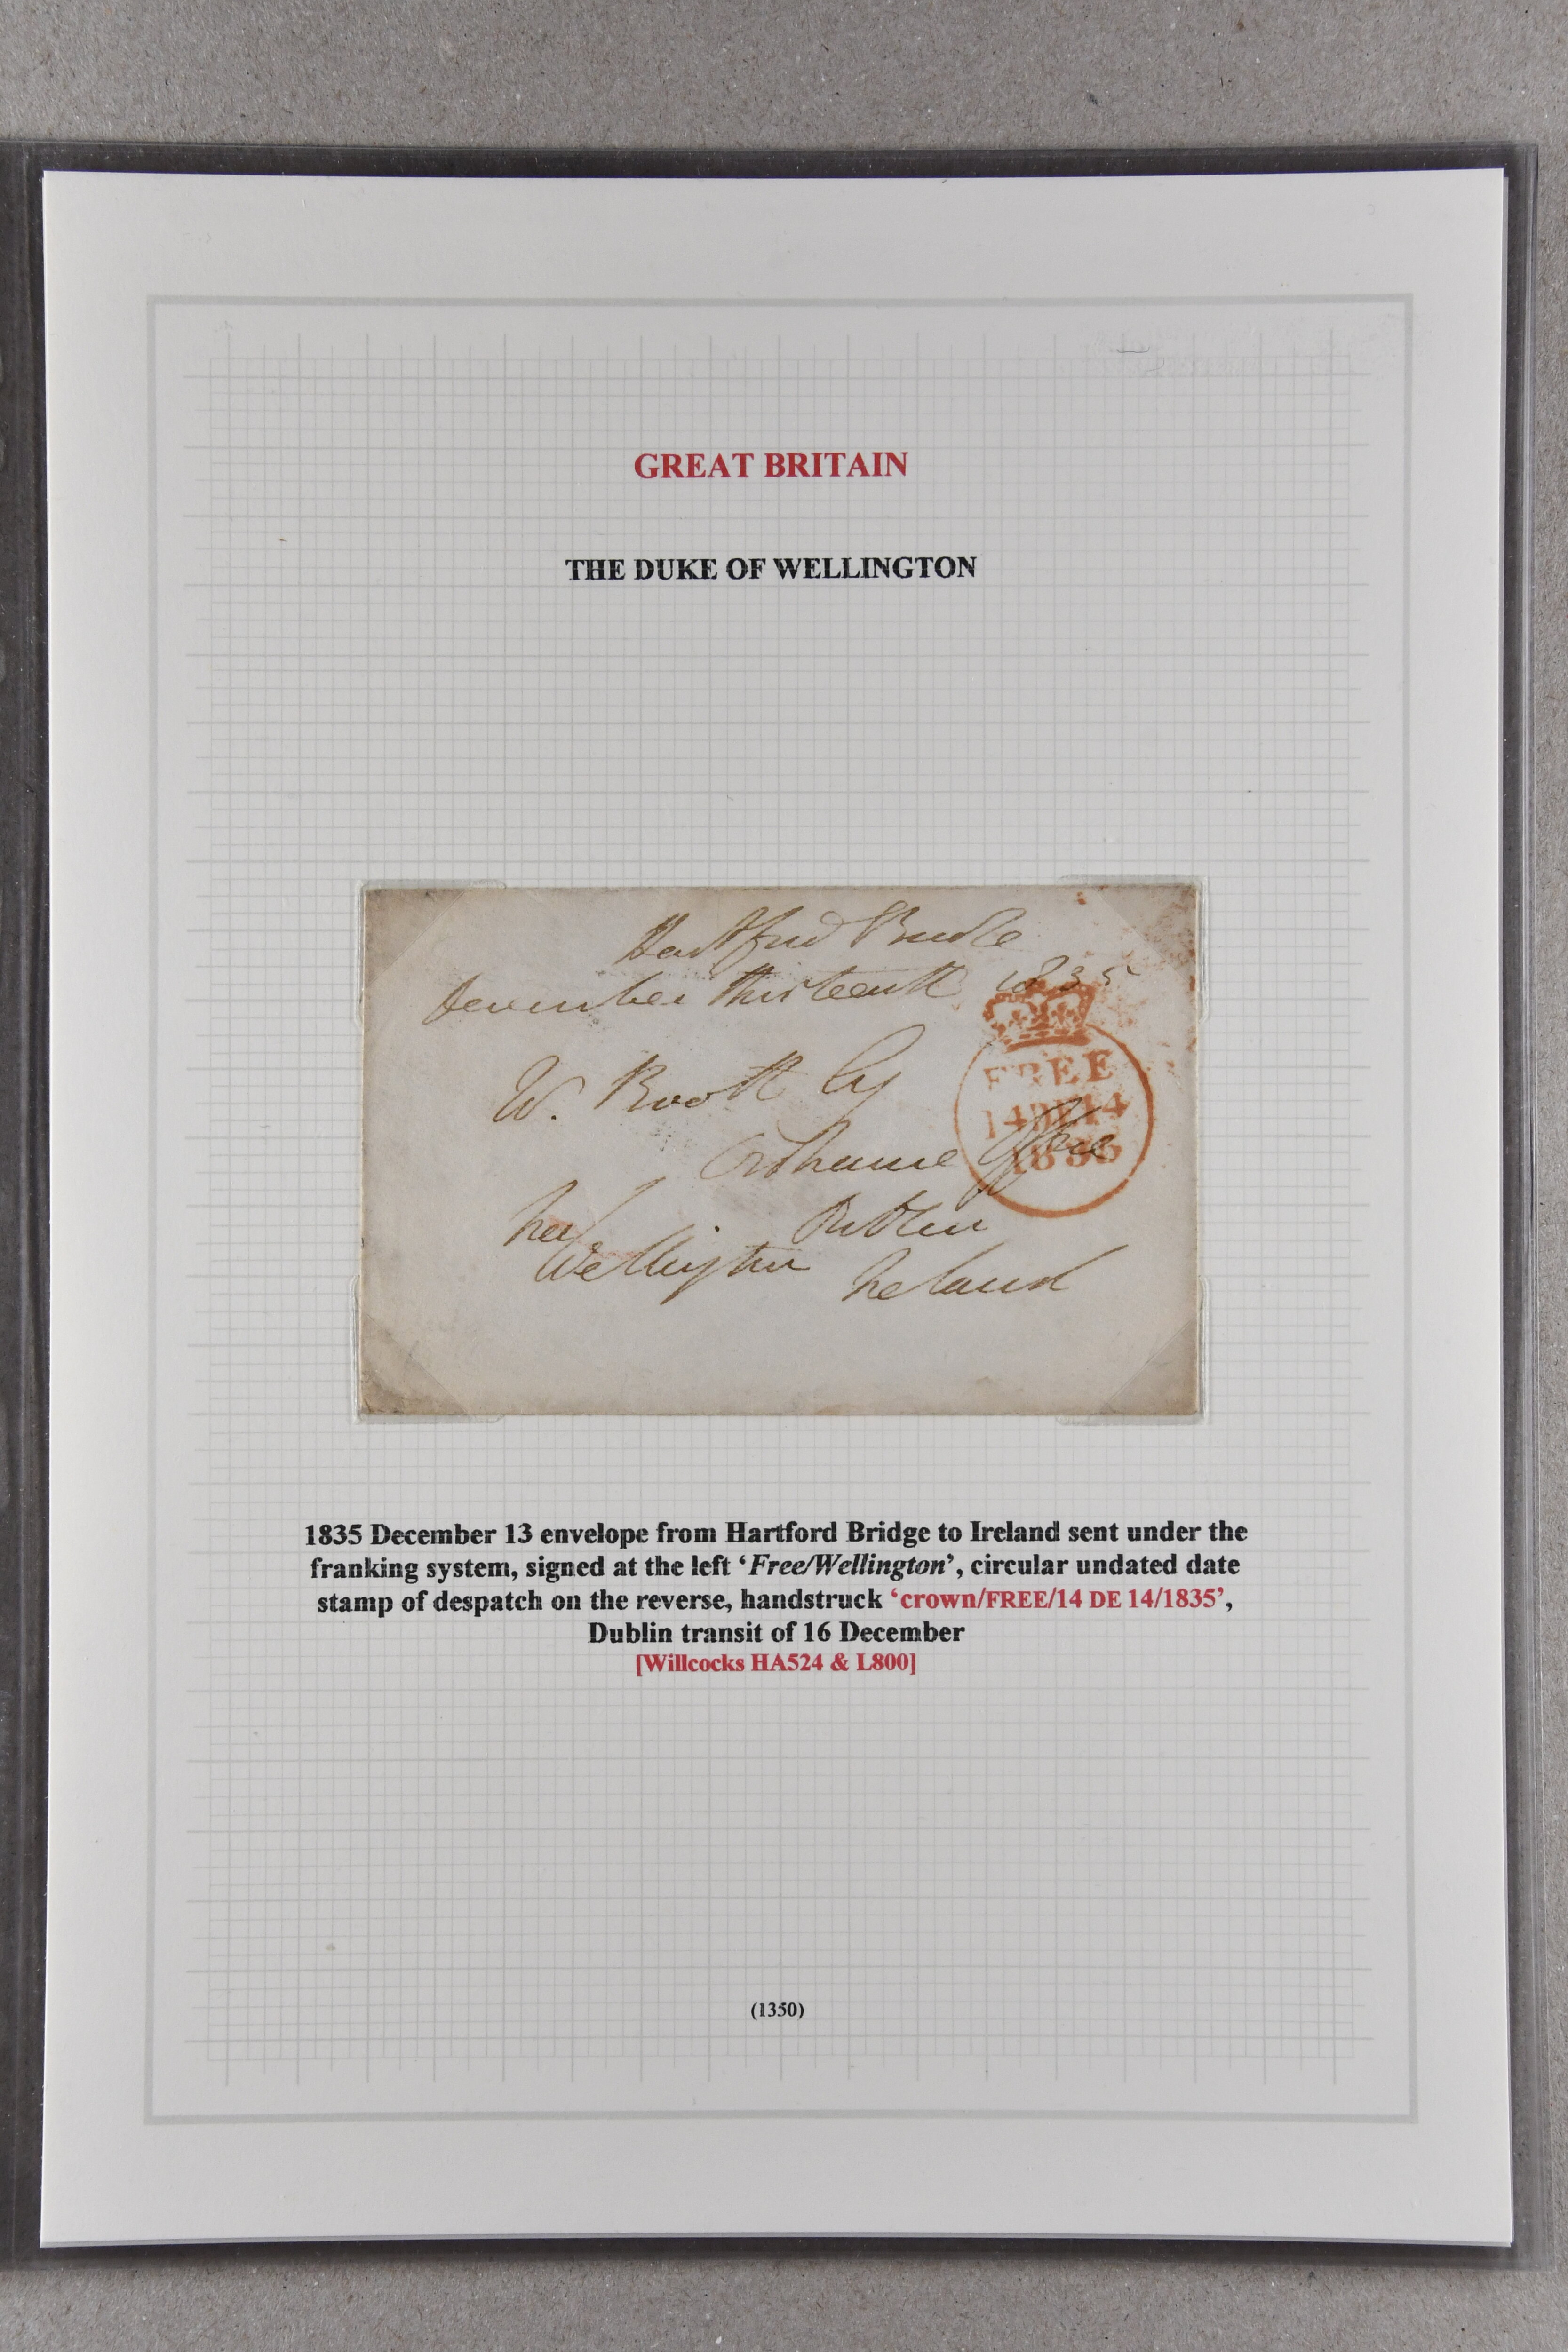 GREAT BRITAIN
THE DUKE OF WELLINGTON
Hartford Bridge
December thirteenth 1835
W. Booth Esq
Ordnance Office
Dublin
Ireland
free
Wellington
FREE
14DE14
1835
1835 December 13 envelope from Hartford Bridge to Ireland sent under the
franking system, signed at the left ‘Free/Wellington’, circular undated date
stamp of despatch on the reverse, handstruck ‘crown/FREE/14 DE 14/1835’,
Dublin transit of 16 December
[Willcocks HA524 & L800]
(1350)